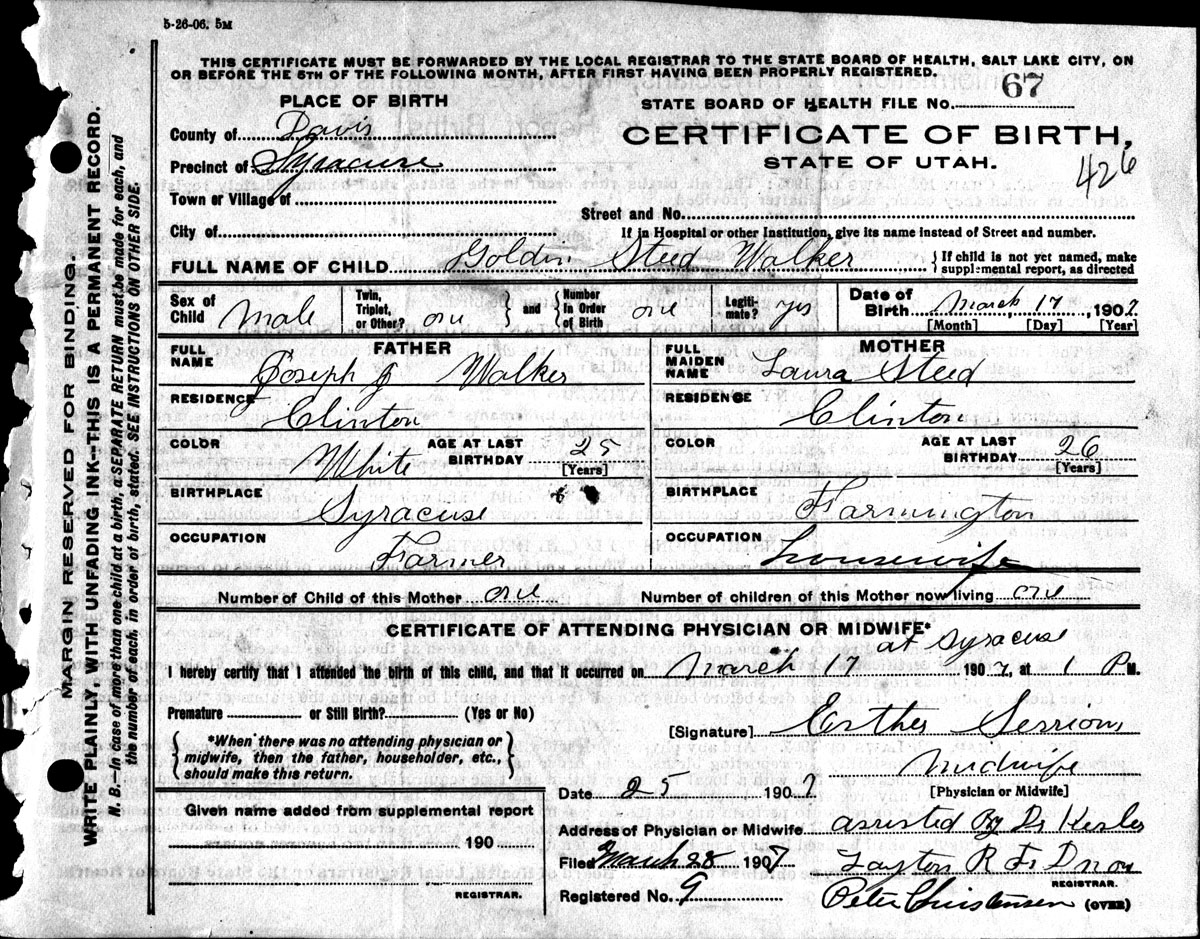 5-26-06. 5M
THIS CERTIFICATE MUST BE FORWARDED BY THE LOCAL REGISTRAR TO THE STATE BOARD OF HEALTH, SALT LAKE CITY, ON
OR BEFORE THE 5TH OF THE FOLLOWING MONTH, AFTER FIRST HAVING BEEN PROPERLY REGISTERED.
PLACE OF BIRTH
STATE BOARD OF HEALTH FILE NO. 67
County of Davis
CERTIFICATE OF BIRTH,
Precinct of Syracuse
STATE OF UTAH.
426
Town or Village of
Street and No.
City of
If in Hospital or other Institution, give its name instead of Street and number.
FULL NAME OF CHILD Goldin Steed Walker
} If child is not yet named, make
supplemental report, as directed
Sex of Child Male
Twin, Triplet, or Other? one } and { Number In Order of Birth one
Legiti-mate? yes
Date of Birth March 17, 1907
[Month] [Day] [Year]
FATHER
FULL NAME Joseph J Walker
RESIDENCE Clinton
COLOR White AGE AT LAST BIRTHDAY 25
[Years]
BIRTHPLACE Syracuse
OCCUPATION Farmer
MOTHER
FULL MAIDEN NAME Laura Steed
RESIDENCE Clinton
COLOR AGE AT LAST BIRTHDAY 26
[Years]
BIRTHPLACE Farmington
OCCUPATION housewife
Number of Child of this Mother one Number of children of this Mother now living one
CERTIFICATE OF ATTENDING PHYSICIAN OR MIDWIFE*
at Syracuse
I hereby certify that I attended the birth of this child, and that it occurred on March 17 1907, at 1 P M.
Premature or Still Birth? (Yes or No)
{ *When there was no attending physician or
midwife, then the father, householder, etc.,
should make this return. }
[Signature] Esther Sessions
Midwife
[Physician or Midwife]
Date 25 1907
Given name added from supplemental report
190
REGISTRAR.
Address of Physician or Midwife assisted By Dr Kesler
Filed March 28 1907 Layton R F D
REGISTRAR.
Registered No. 9 Peter Christensen (OVER)
MARGIN RESERVED FOR BINDING.
WRITE PLAINLY, WITH UNFADING INK--THIS IS A PERMANENT RECORD.
N. B.--In case of more than one child at a birth, a SEPARATE RETURN must be made for each, and
the number of each, in order of birth, stated. SEE INSTRUCTIONS ON OTHER SIDE.